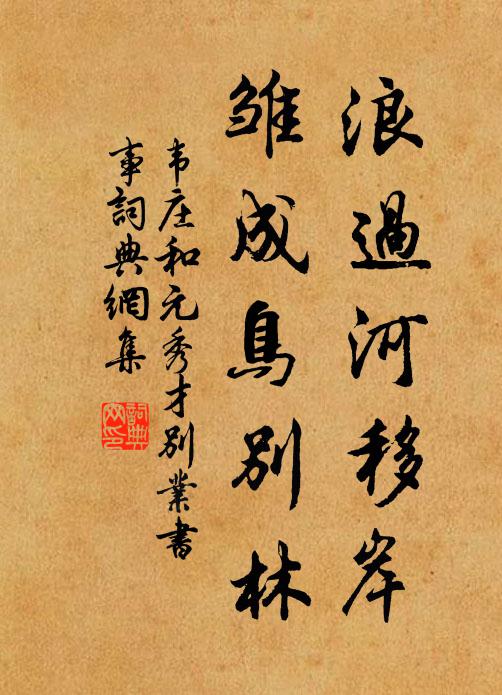 浪過河移岸
雛成鳥別林
韦庄和元秀才别業書
事詞典網集
詞典
网印